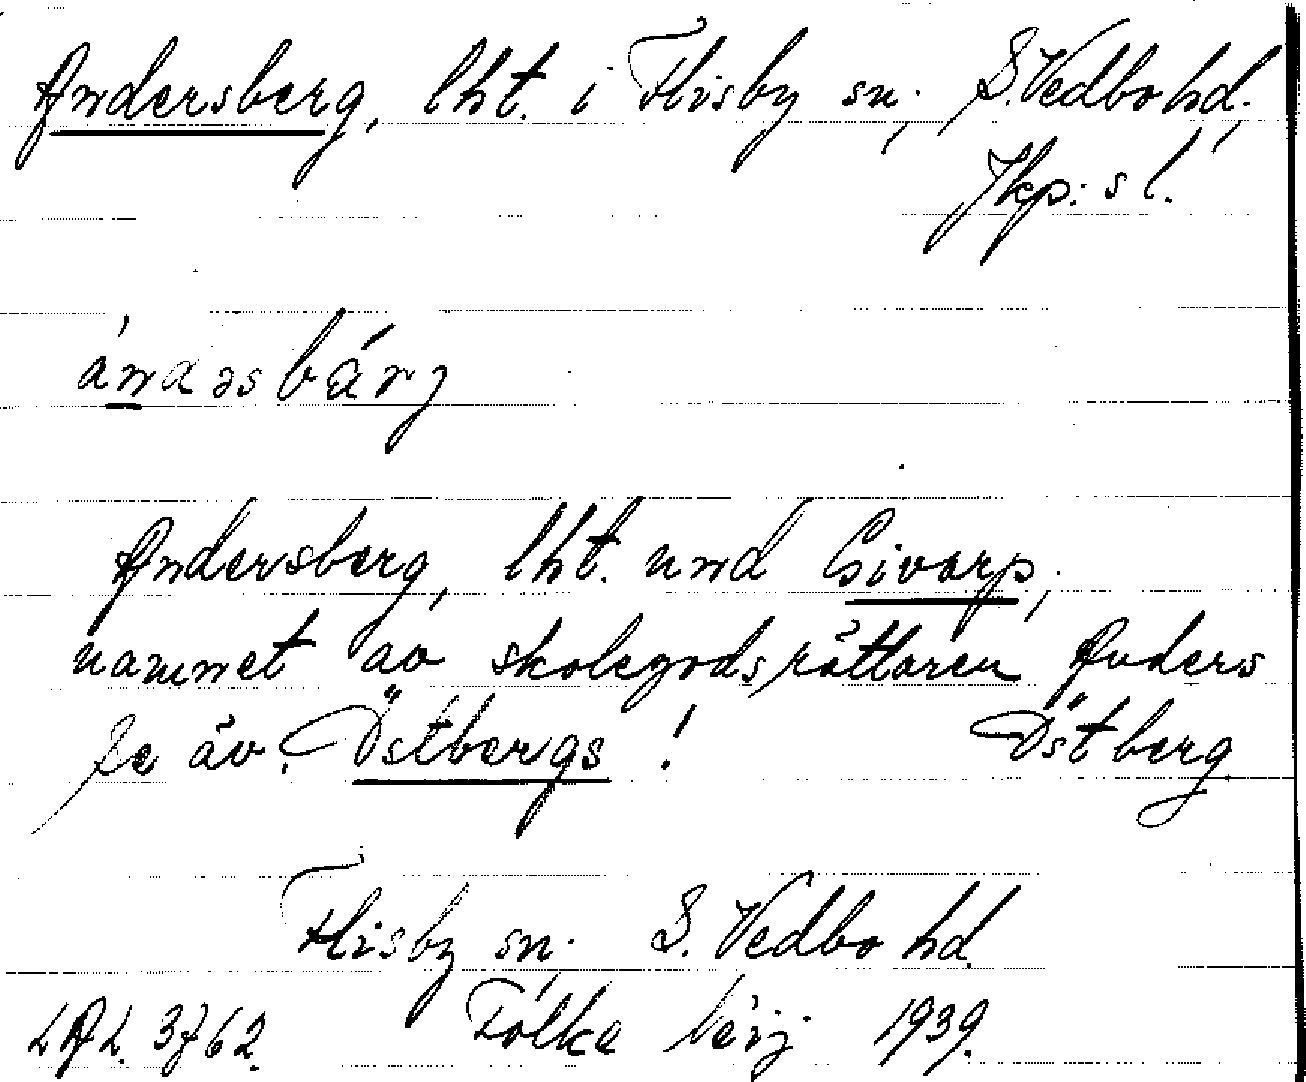 Andersberg, lht. i Flisby sn, S. Vedbo hd,
Jkp:s l.
ándəsbárj
Andersberg, lht. und Givarp,
namnet av skolegodsrättaren Anders
Se äv. Östbergs! Östberg
Flisby sn. S. Vedbo hd.
LAL. 3762. Fólke 1939.